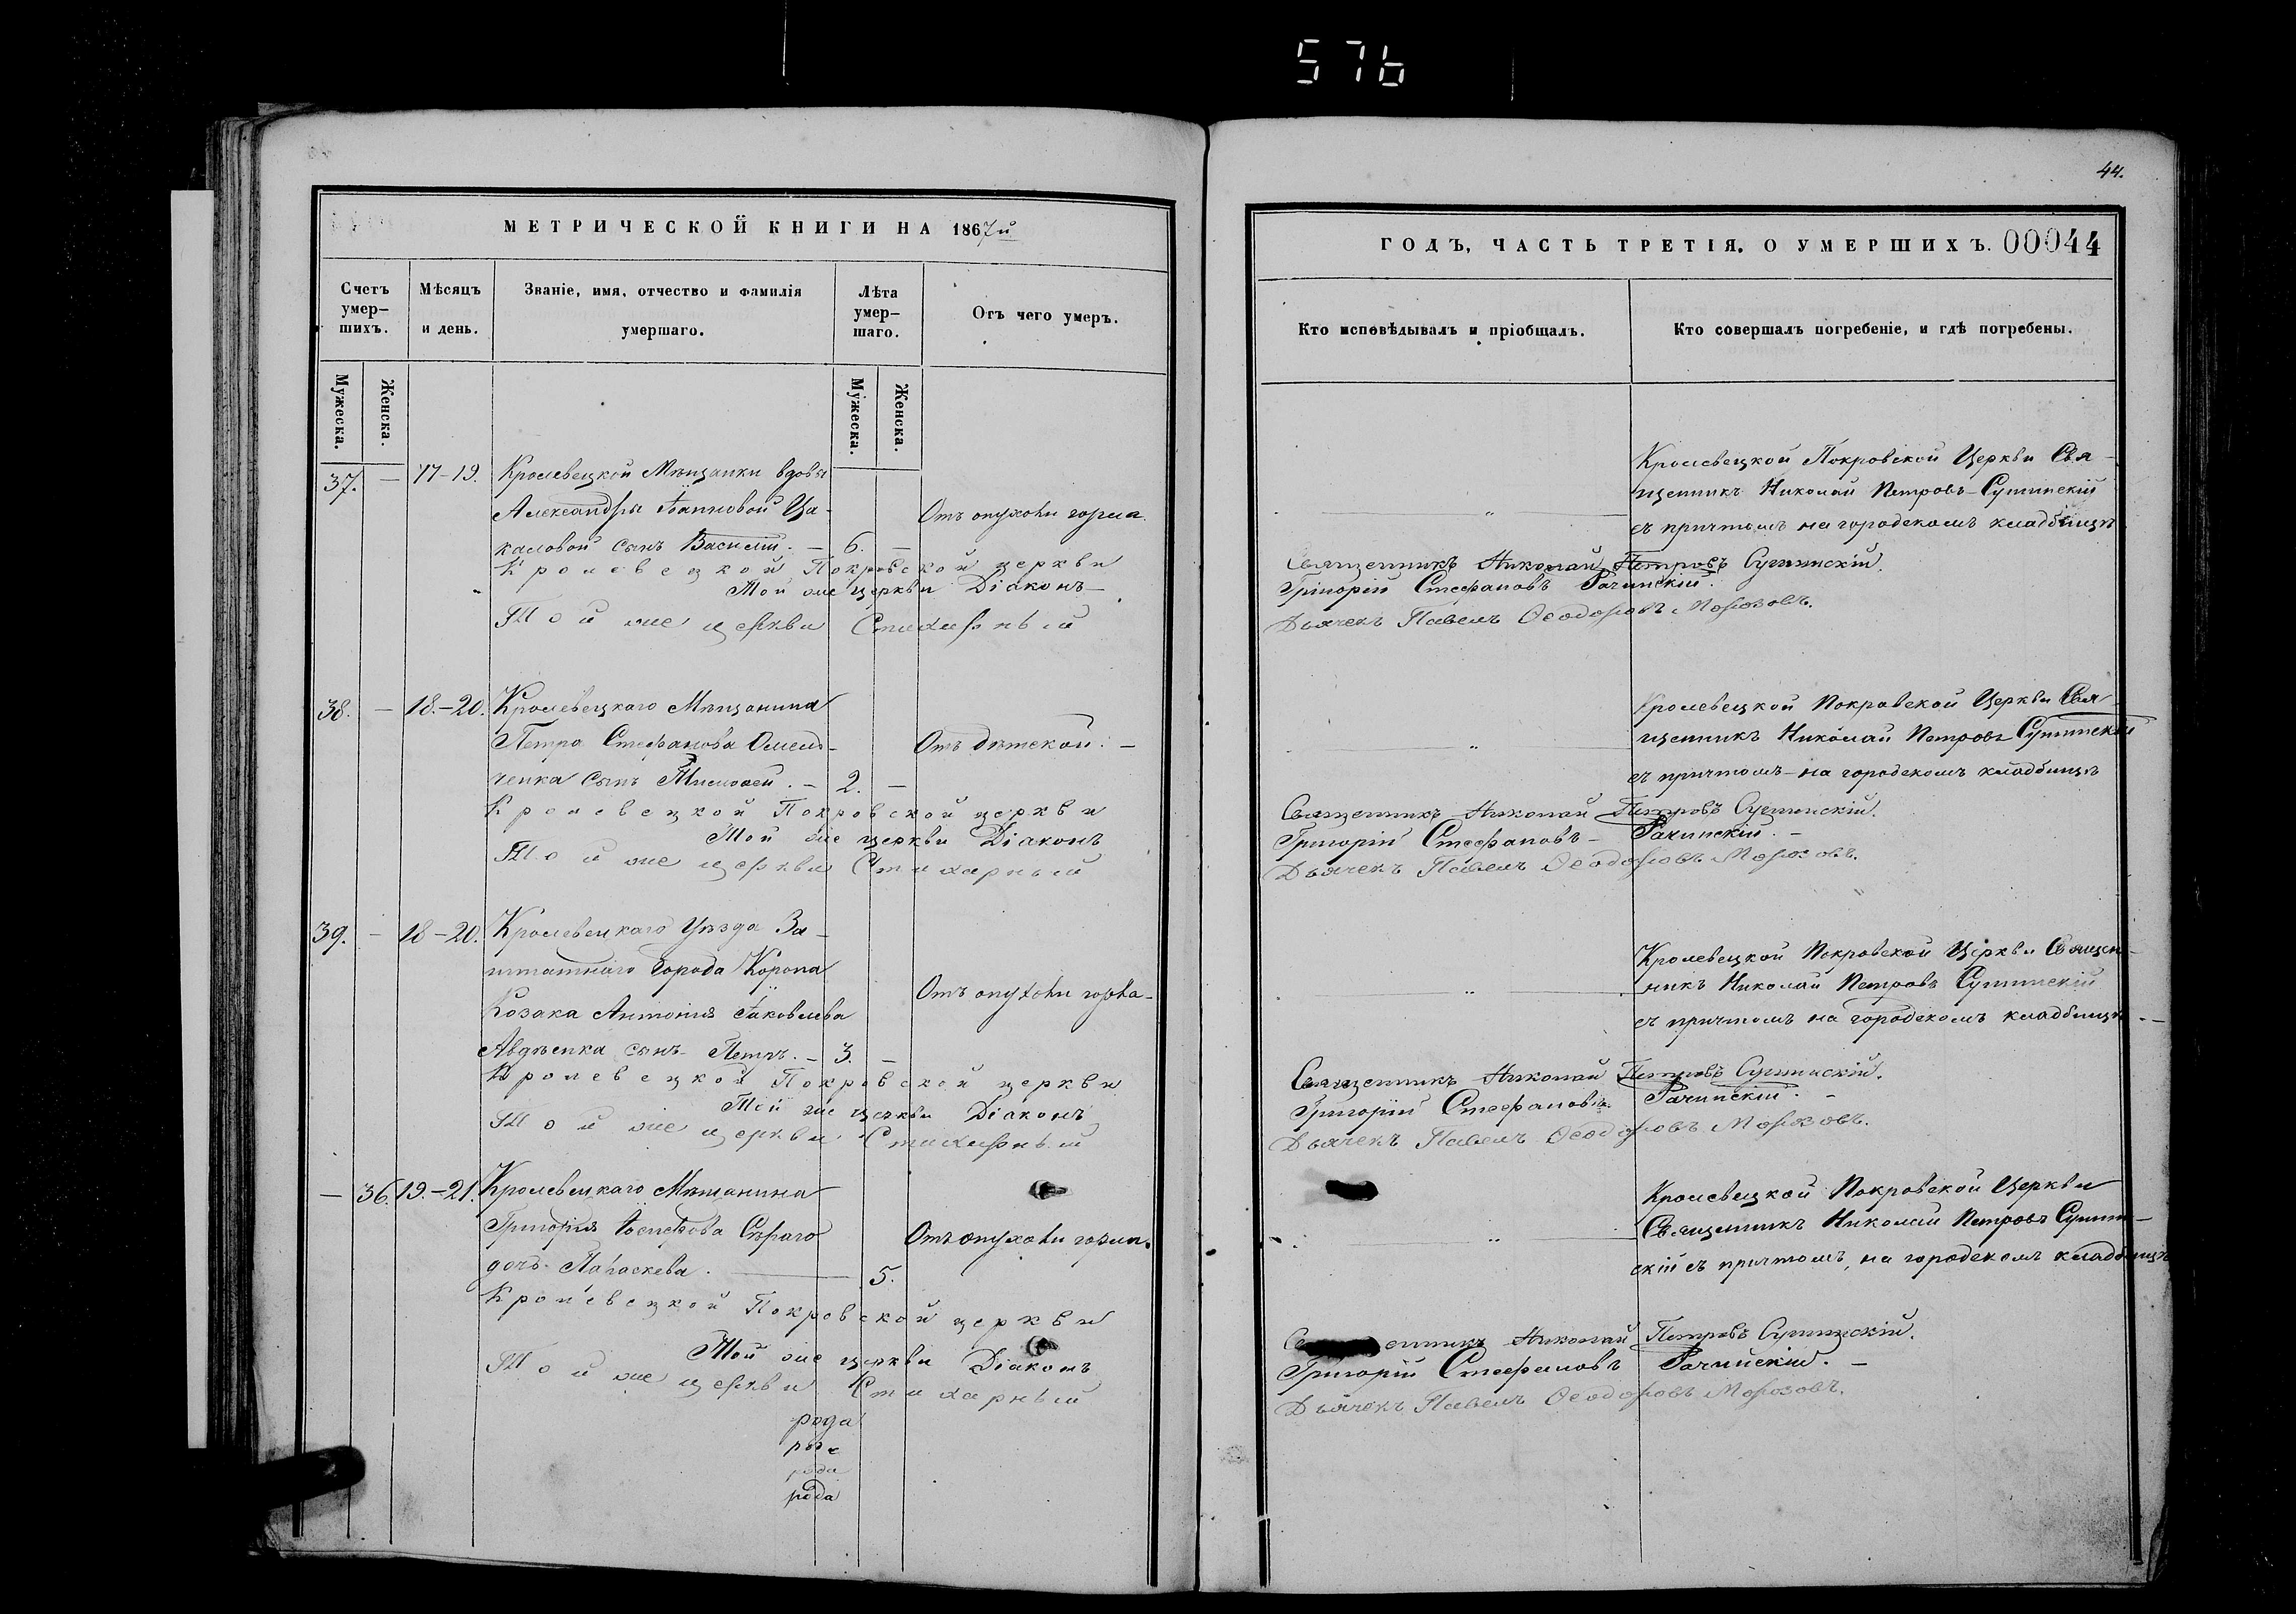 576
44.
МЕТРИЧЕСКОЙ КНИГИ НА 1867й
ГОДЪ, ЧАСТЬ ТРЕТІЯ. О УМЕРШИХЪ. 00044
Счетъ умер-шихъ.
Мужеска.
Женска.
Мѣсяцъ и день.
Званіе, имя, отчество и фамилія умершаго.
Лѣта умер-шаго.
Мужеска.
Женска.
Отъ чего умеръ.
Кто исповѣдывалъ и пріобщалъ.
Кто совершалъ погребеніе, и гдѣ погребены.
37. — 17-19. Кролевецкой Мѣщанки вдовы
Александры Іоанновой Ца-
каловой сынъ Василій. — 6. —
Отъ опухоли горла.
Кролевецкой Покровской Церкви Свя-
щенникъ Николай Петровъ
съ причтомъ на городскомъ кладбищѣ
Кролевецкой Покровской церкви Священникъ Николай Петровъ
Той же церкви Діаконъ — Григорій Стефановъ Рачинскій.
Той же церкви Стихарный Дьячекъ Павелъ Ѳеодоровъ Морозовъ.
38. — 18.-20. Кролевецкаго Мѣщанина
Петра Стефанова Омель-
ченка сынъ — 2. —
Отъ дѣтской. —
Кролевецкой Покровской Церкви Свя-
щенникъ Николай Петровъ
съ причтомъ — на городскомъ кладбищѣ
Кролевецкой Покровской церкви Священникъ Николай Петровъ
Той же церкви Діаконъ Григорій Стефановъ — Рачинскій. —
Той же церкви Стихарный Дьячекъ Павелъ Ѳеодоровъ Морозовъ.
39. — 18-20. Кролевецкаго Уѣзда За-
штатнаго города Коропа
Козака Антонія Іаковлева
Авдѣенка сынъ — Петръ. — 3. —
Отъ опухоли горла —
Кролевецкой Покровской Церкви Священ-
никъ Николай Петровъ
съ причтомъ на городскомъ кладбищѣ. —
Кролевецкой Покровской церкви Священникъ Николай Петровъ
Той же церкви Діаконъ Григорій Стефановъ Рачинскій. —
Той же церкви Стихарный Дьячекъ Павелъ Ѳеодоровъ Морозовъ.
— 36. 19.-21. Кролевецкаго Мѣщанина
Григорія Іосифова Сѣраго
дочь — Параскева. — 5.
Отъ опухоли горла.
Кролевецкой Покровской Церкви
Священникъ Николай Петровъ
скій съ причтомъ, на городскомъ кладбищѣ
Кролевецкой Покровской церкви Николай Петровъ
Той же церкви Діаконъ Григорій Стефановъ Рачинскій. —
Той же церкви Стихарный Дьячекъ Павелъ Ѳеодоровъ Морозовъ.
рода
рода
рода